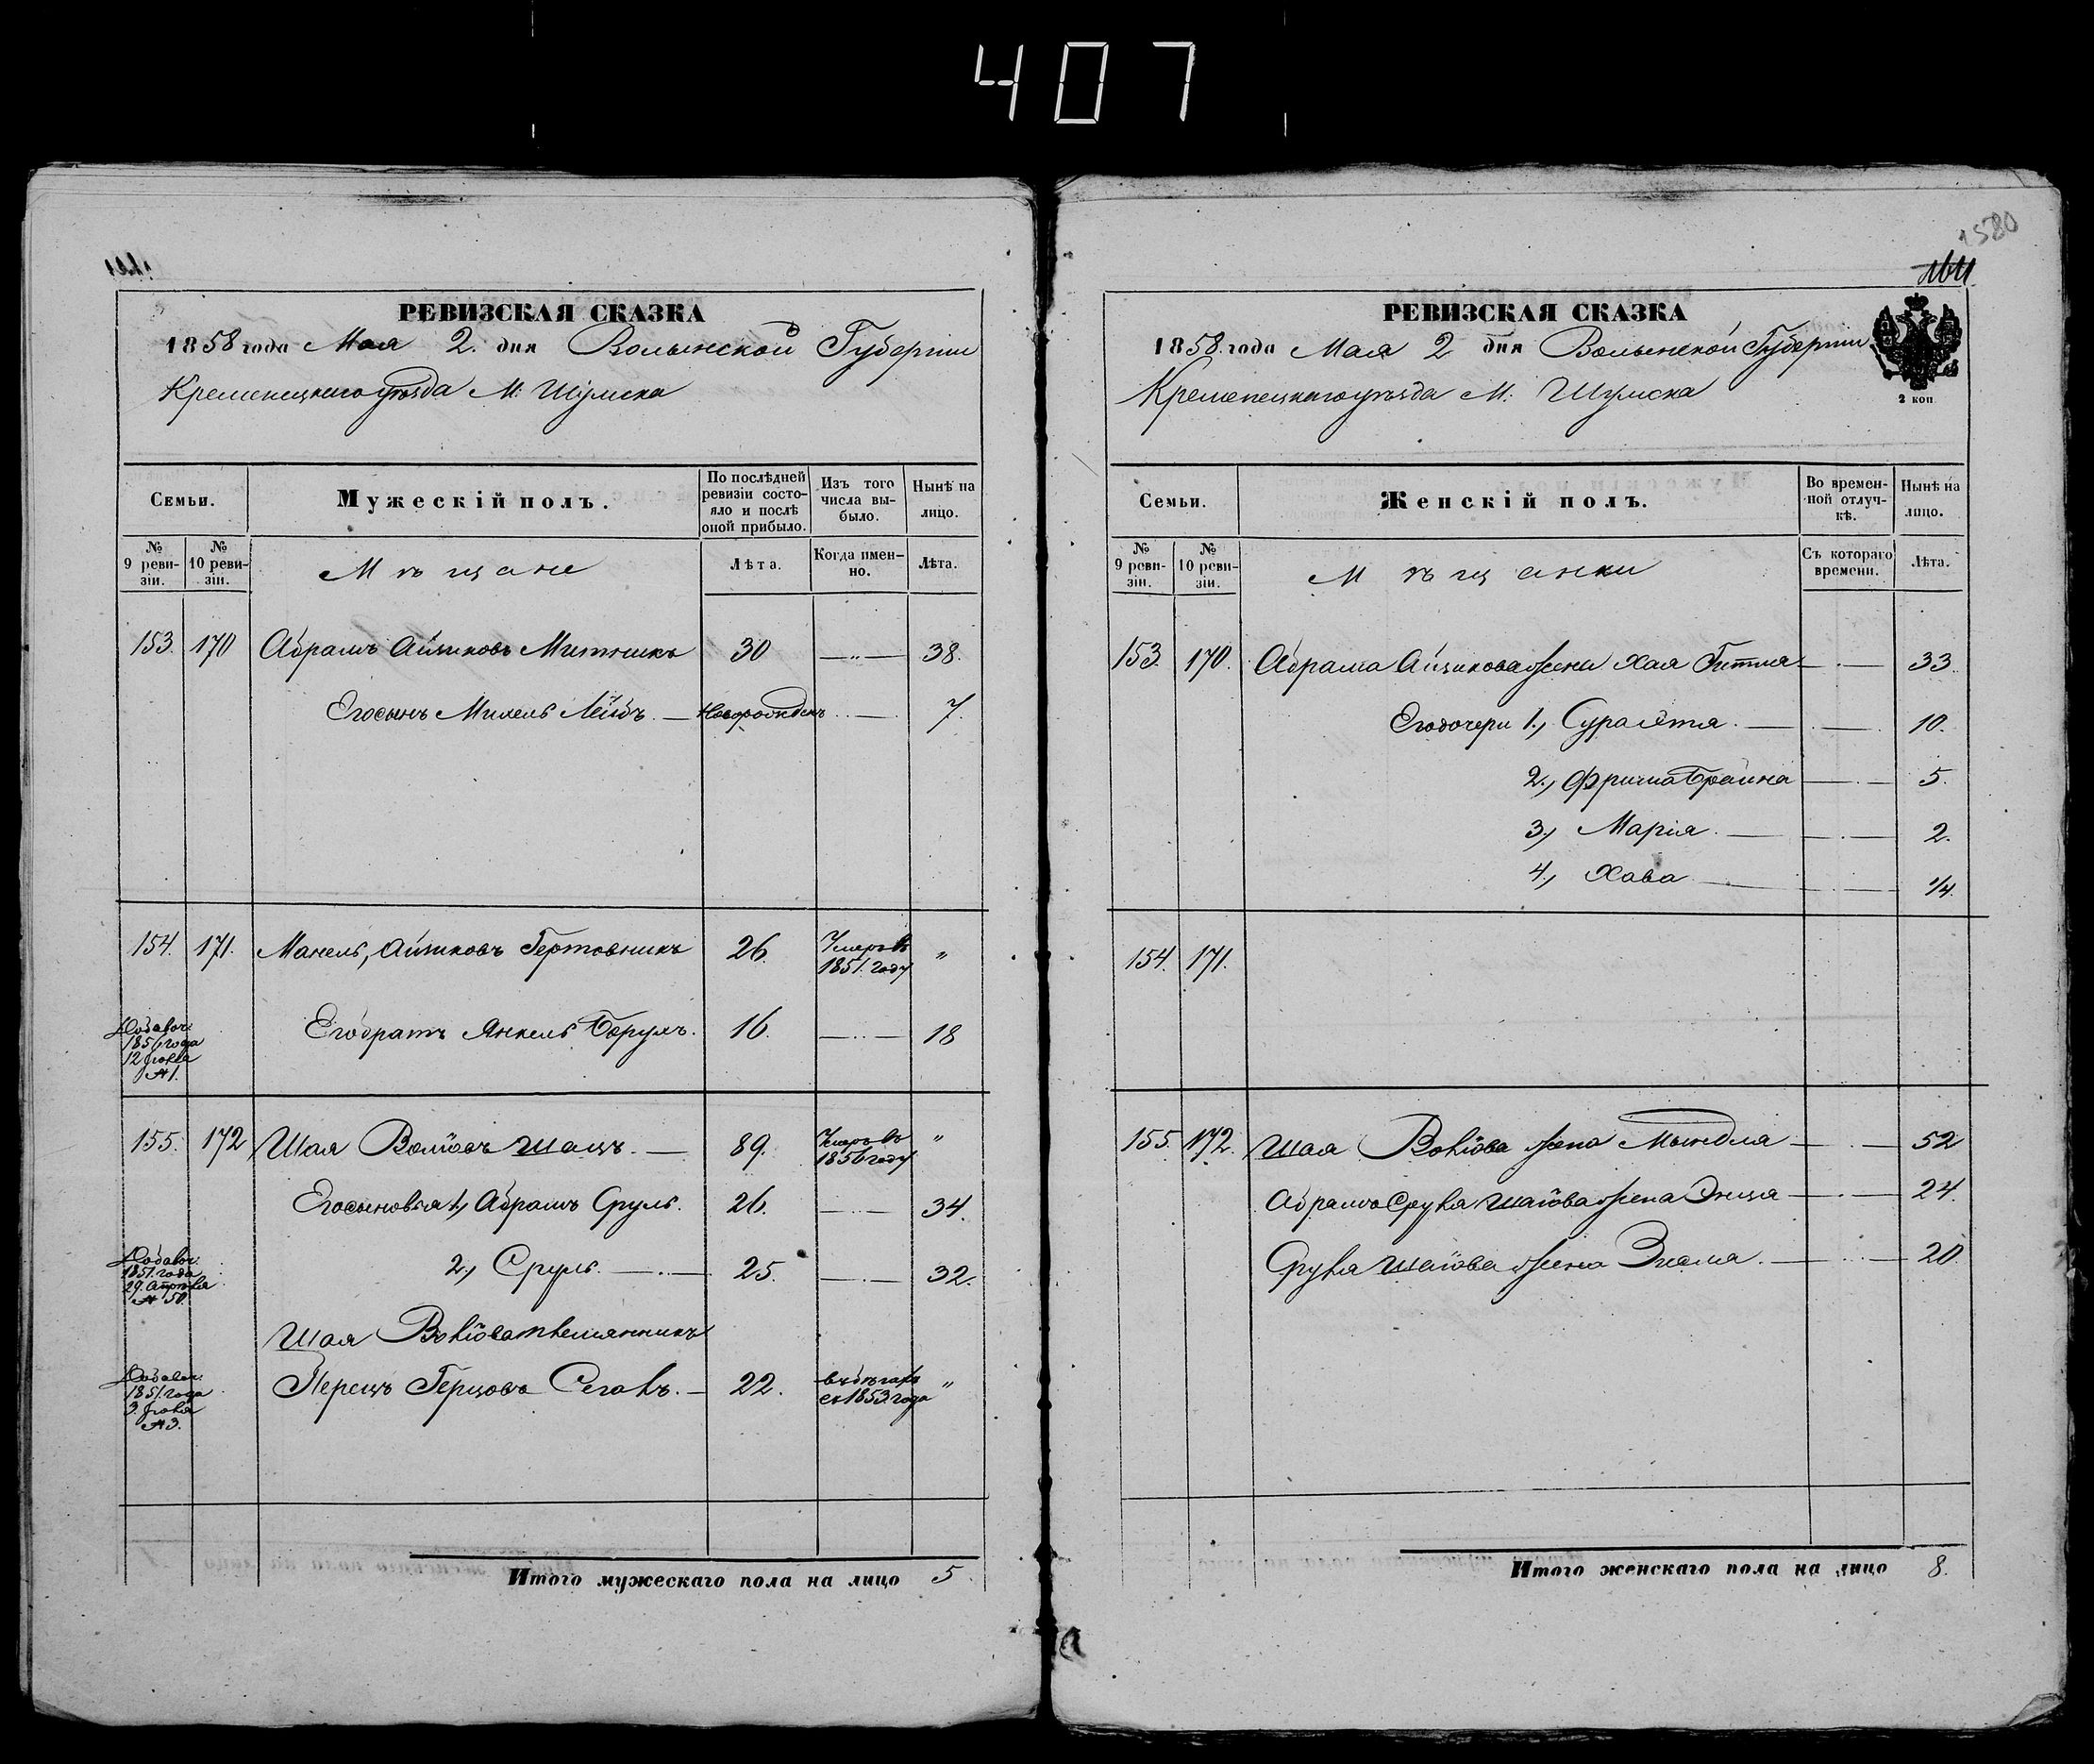 407
РЕВИЗСКАЯ СКАЗКА
1858 года Мая 2. дня Волынской Губерніи
Кременецкаго уѣзда М. Шумска
Семьи.
Мужескій полъ.
По послѣдней ревизіи состояло и послѣ оной прибыло.
Изъ того числа выбыло.
Нынѣ на лицо.
№ 9 ревизіи.
№ 10 ревизіи.
Мѣщане
Лѣта.
Когда именно.
Лѣта.
153. 170 Абрамъ Айзиковъ 30 —„— 38.
Его сынъ Михель Лейбъ. — Новорожденъ — 7.
154. 171. Манель, Айзиковъ Гертовникъ 26. Умеръ въ 1851. году „
Добавоч. 1851 года № 1. Его братъ Янкель 16. — 18
155. 172 Шая Волїовъ Шацъ. — 89. Умеръ въ 1856 году „
Его сыновья 1, Абрамъ Сруль. 26. — 34.
Добавоч. 1851. года № 50. 2., Сруль. — 25. — 32.
Шая Волїова племянникъ
Добавоч. 1851. года № 3. Перецъ Герцовъ Сегалъ. — 22. въ бѣгахъ съ 1853 года „
Итого мужескаго пола на лицо 5
1580
РЕВИЗСКАЯ СКАЗКА
1858. года Мая 2 дня Волынской Губерніи
Кременецкаго уѣзда М. Шумска
2 коп
Семьи.
Женскій полъ.
Во временной отлучкѣ.
Нынѣ на лицо.
№ 9 ревизіи.
№ 10 ревизіи.
Мѣщанки
Съ котораго времени.
Лѣта.
153. 170. Абрама Айзикова жена Хая Гитля — 33
Его дочери 1., Сура Этя. — 10.
2., Фрима Браина — 5.
3., Марія. — 2.
4., Хава — 1/4.
154. 171.
155. 172. Шая Волїова жена Мындля — 52
Абрамъ Сруля Шаїова жена — 24.
Сруля Шаїова жена — 20.
Итого женскаго пола на лицо 8.